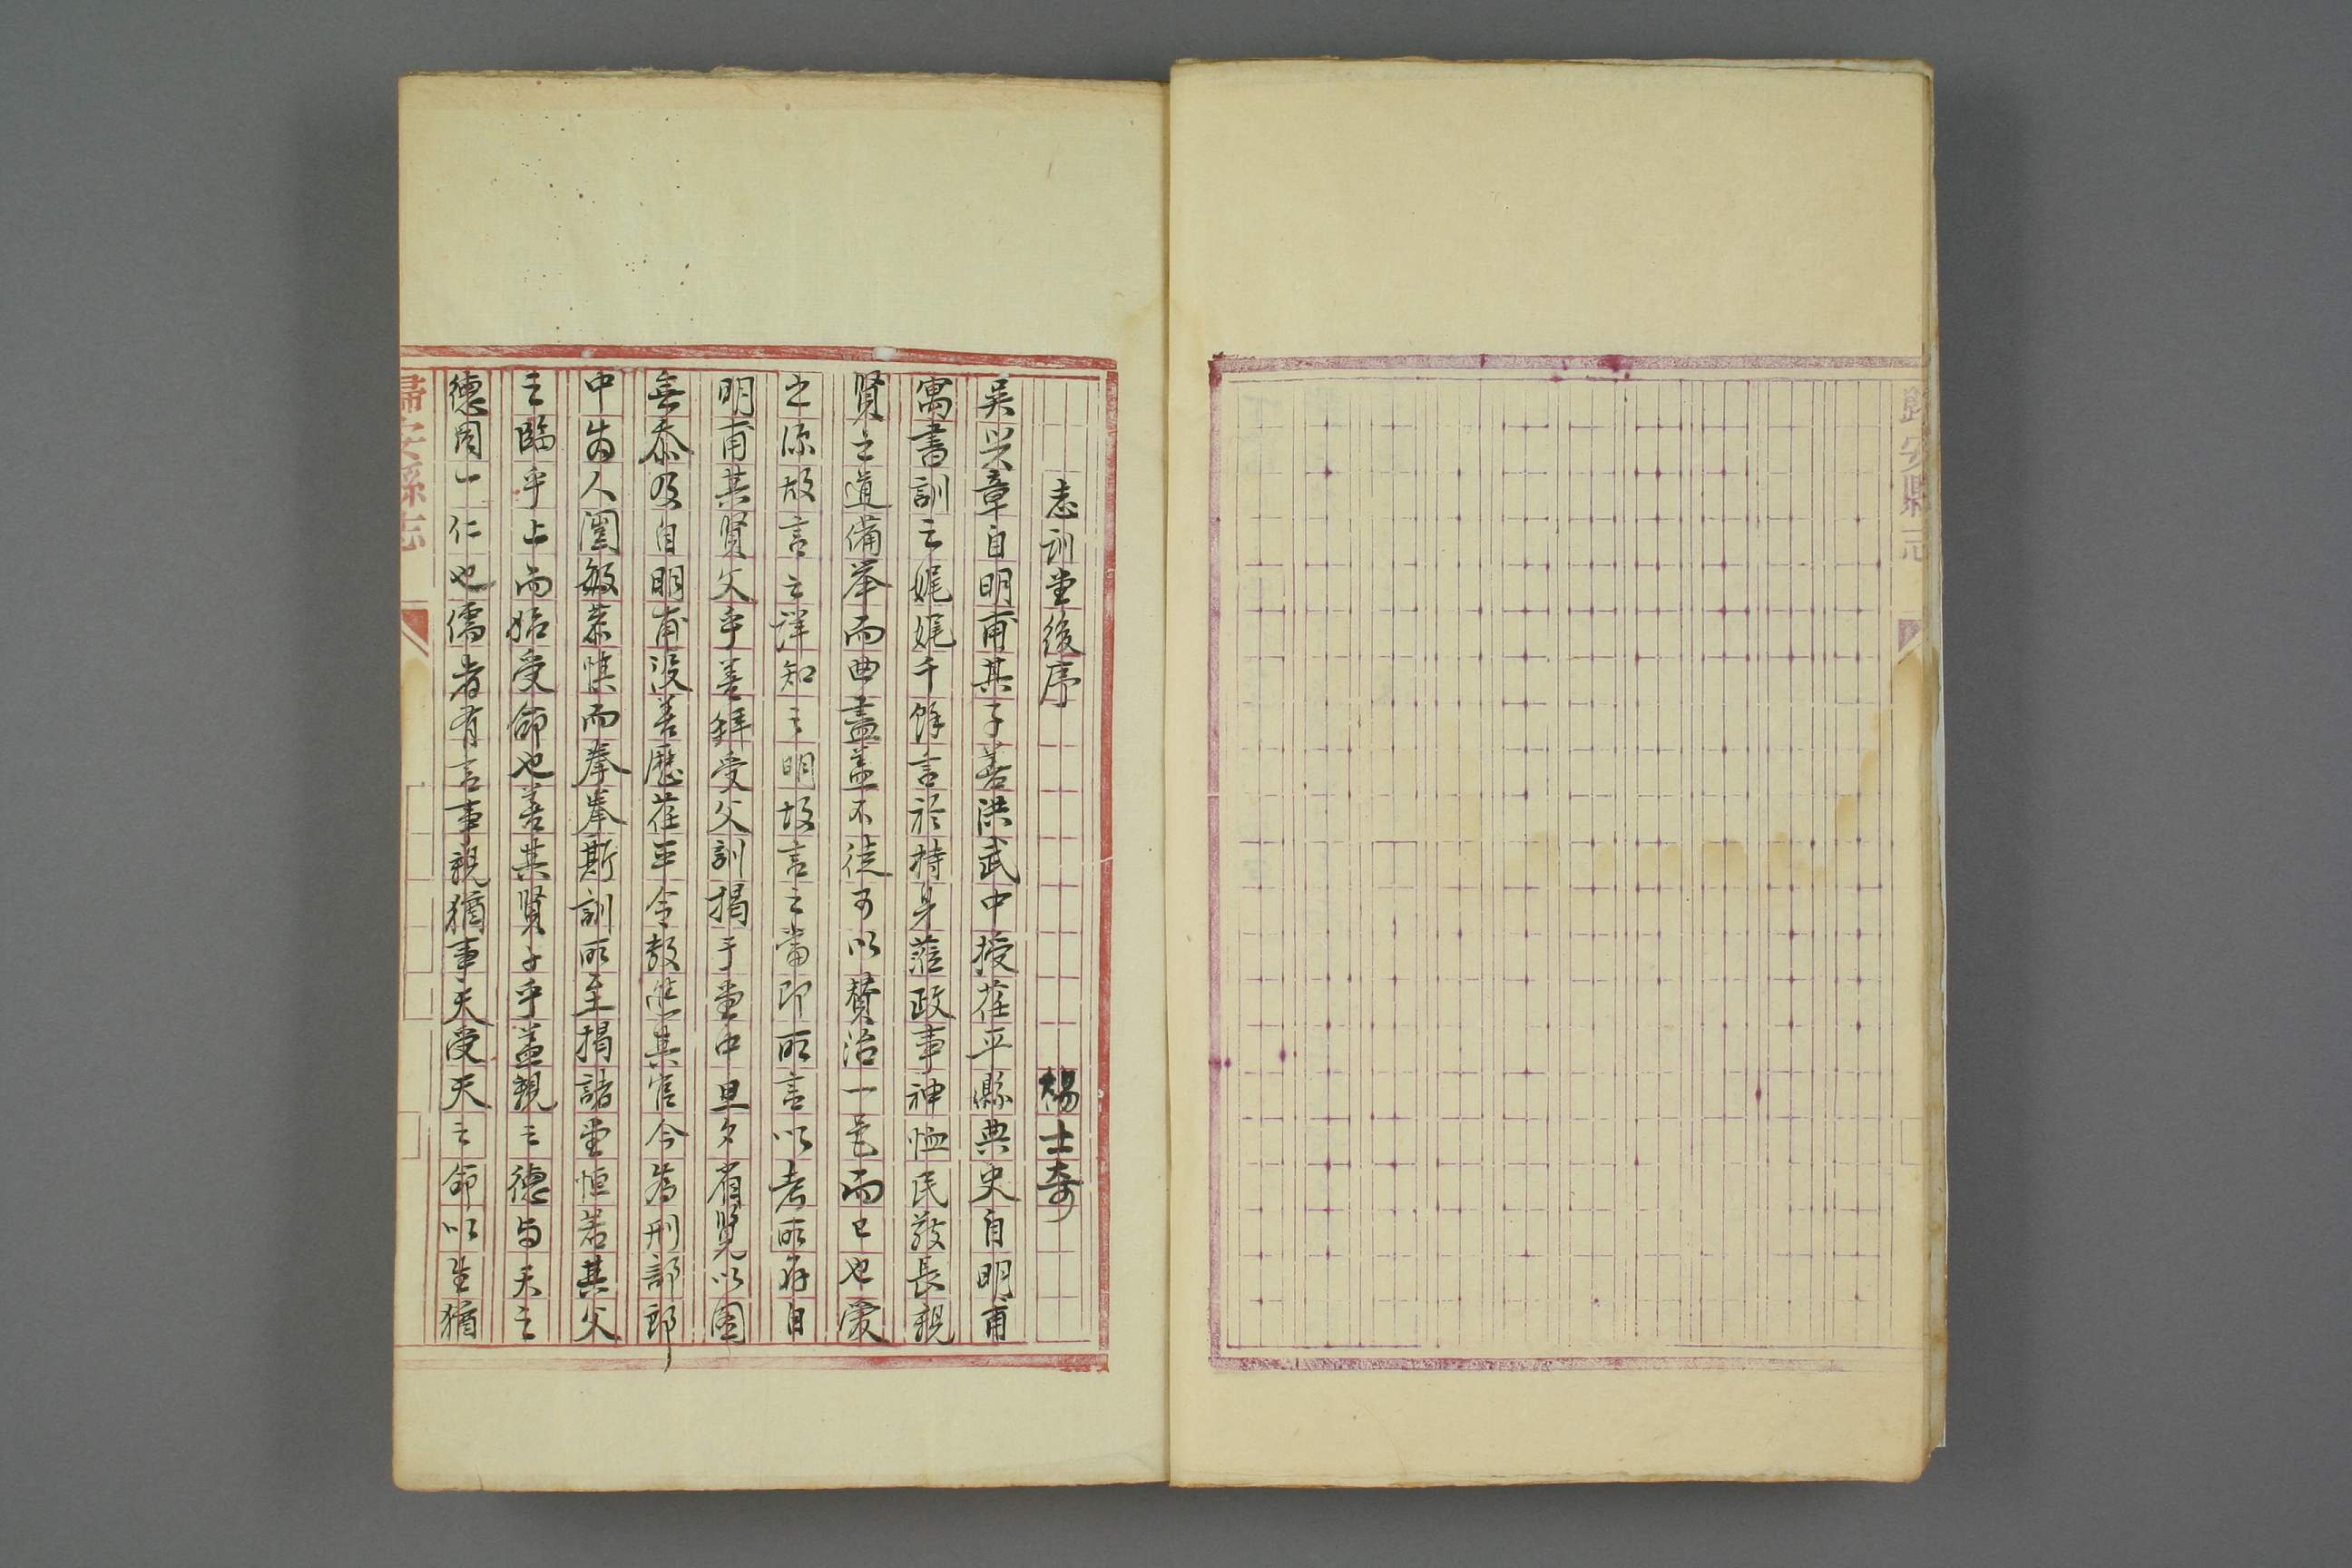 歸安縣志
志訓堂後序 楊士奇
吳兴章自明甫其子善洪武中授茌平縣典史自明甫
寓書訓之娓娓千餘言於持身蒞政事神恤民敬長親
賢之道備举而曲盡蓋不徒可以賛治一邑而已也爱
之深故言之詳知之明故言之當即所言以考所存自
明甫其賢父乎善拜受父訓揭于堂中旦夕省覽以圖
無忝及自明甫没善歷茌平令教進其官今為刑部郎
中為人闓敏恭慎而拳拳斯訓所至揭諸堂恒若其父
之臨乎上而始受命也善其賢子乎蓋親之德与天之
德同一仁也儒者有言事親猶事天受天之命以生猶
歸安縣志